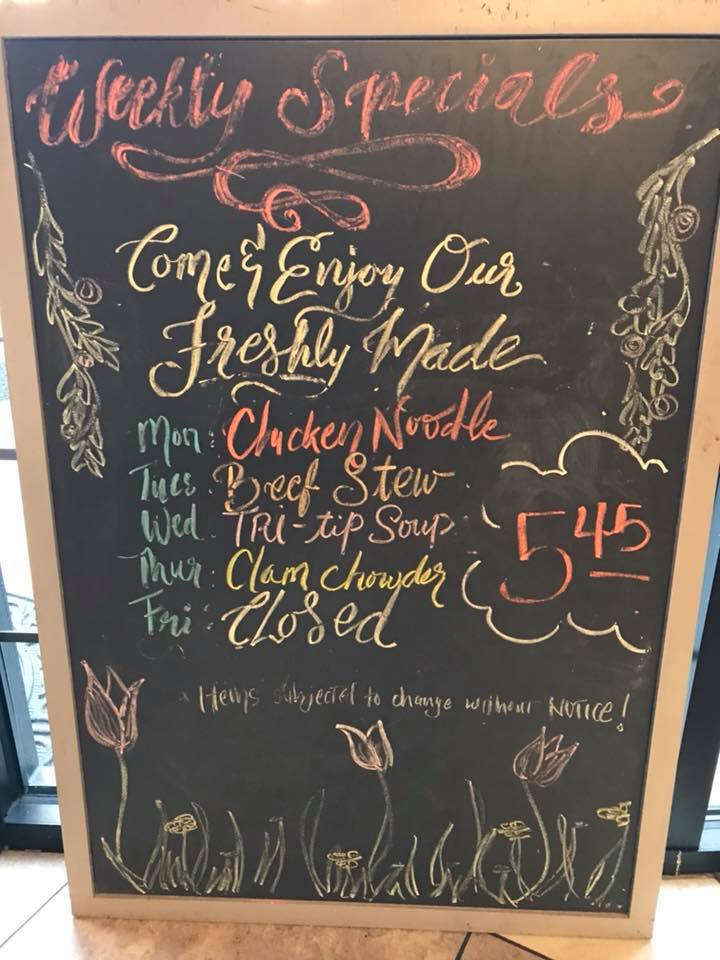 Weekly Specials
Come & Enjoy Our
Freshly Made
Mon: Chicken Noodle
Tues: Beef Stew
Wed: TRI-tip Soup
Thur: Clam Chowder
Fri: Closed
5 45
Items subjected to change without NOTICE!